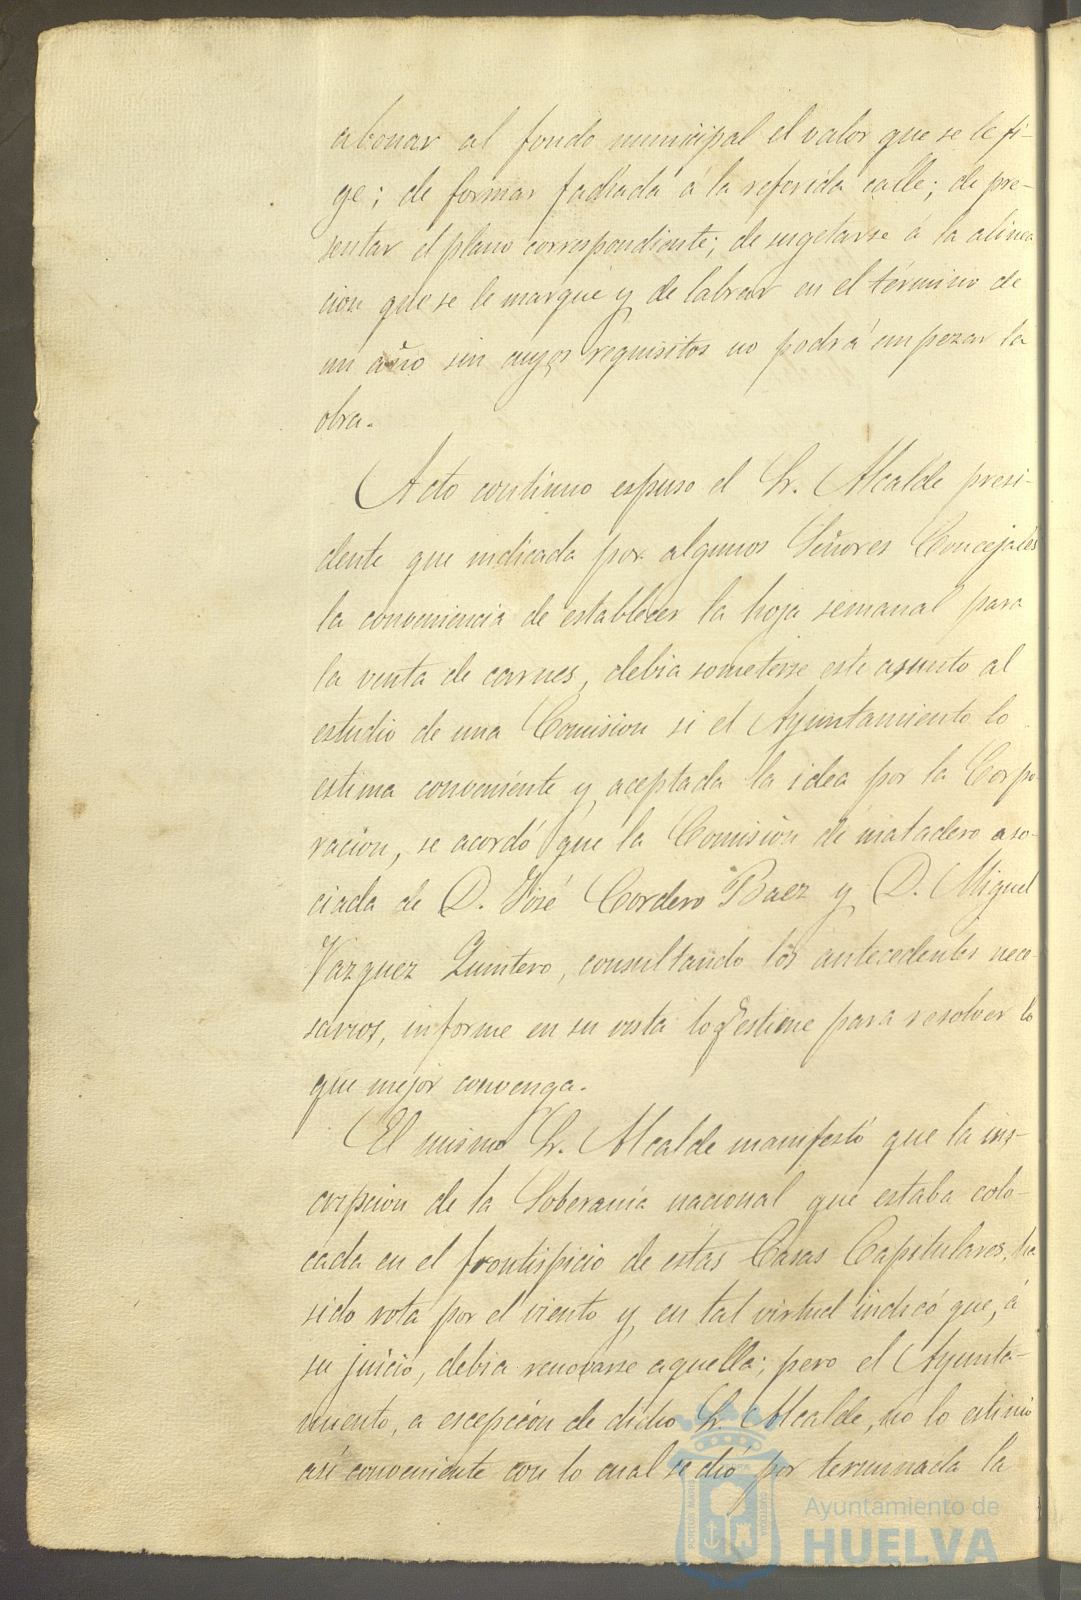 abonar al fondo municipal el valor que se le fi-
ge; de formar fachada á la referida calle; de pre-
sentar el plano correspondiente; de sugetarse á la alinea
cion que se le marque y de labrar en el término de
un año sin cuyos requisitos no podrá empezar la
obra.
Acto continuo espuso el Sr. Alcalde presi-
dente que indicada por algunos Señores Concejales
la conveniencia de establecer la hoja semanal para
la venta de carnes, debia someterse este asunto al
estudio de una Comision si el Ayuntamiento lo
estima conveniente y aceptada la idea por la Corpo-
racion, se acordó que la Comision de matadero aso-
ciada de D. José Cordero Baez y D. Miguel
Vazquez Quintero, consultando los antecedentes nece-
sarios, informe en su vista lo q estime para resolver lo
que mejor convenga.
El mismo Sr. Alcalde manifestó que la ins-
cripcion de la Soberania nacional que estaba colo-
cada en el frontispicio de estas Casas Capitulares, ha
sido rota por el viento y en tal virtud indicó que, á
su juicio, debia renovarse aquella; pero el Ayunta-
miento, a escepcion de dicho Sr. Alcalde, no lo estimó
asi conveniente con lo cual se dió por terminada la
Ayuntamiento de
HUELVA